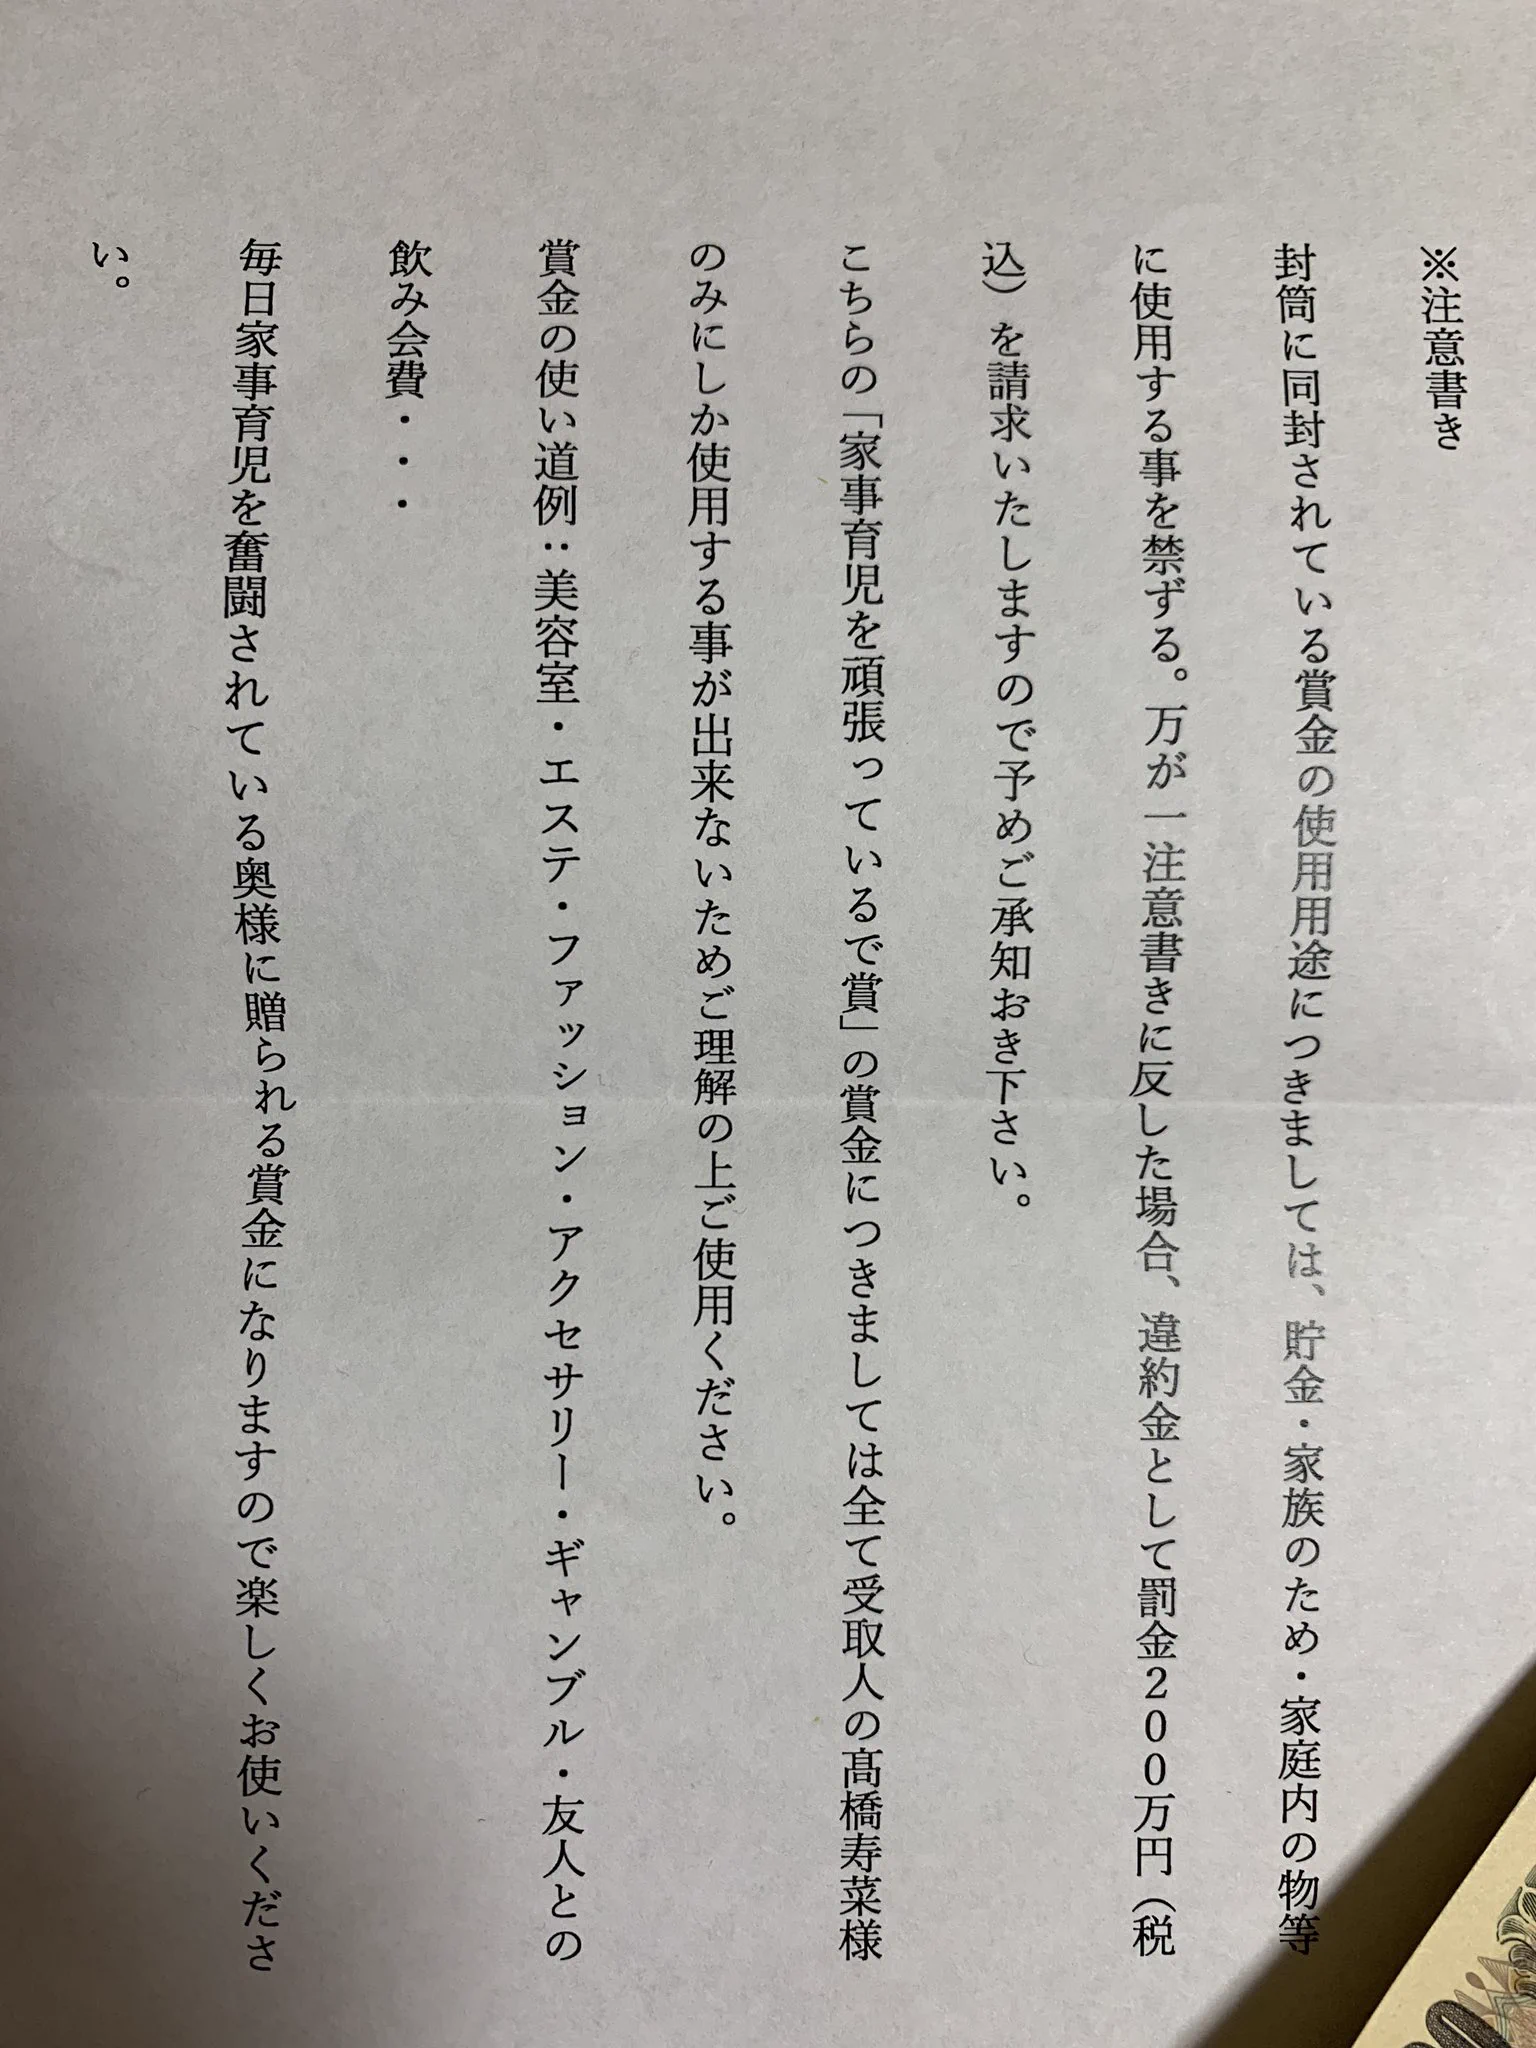 ※注意書き
封筒に同封されている賞金の使用用途につきましては、貯金・家族のため・家庭内の物等
に使用する事を禁ずる。万が一注意書きに反した場合、違約金として罰金200万円（税
込）を請求いたしますので予めご承知おき下さい。
こちらの「家事育児を頑張っているで賞」の賞金につきましては全て受取人の髙橋寿菜様
のみにしか使用する事が出来ないためご理解の上ご使用ください。
賞金の使い道例：美容室・エステ・ファッション・アクセサリー・ギャンブル・友人との
飲み会費・・・
毎日家事育児を奮闘されている奥様に贈られる賞金になりますので楽しくお使いくださ
い。